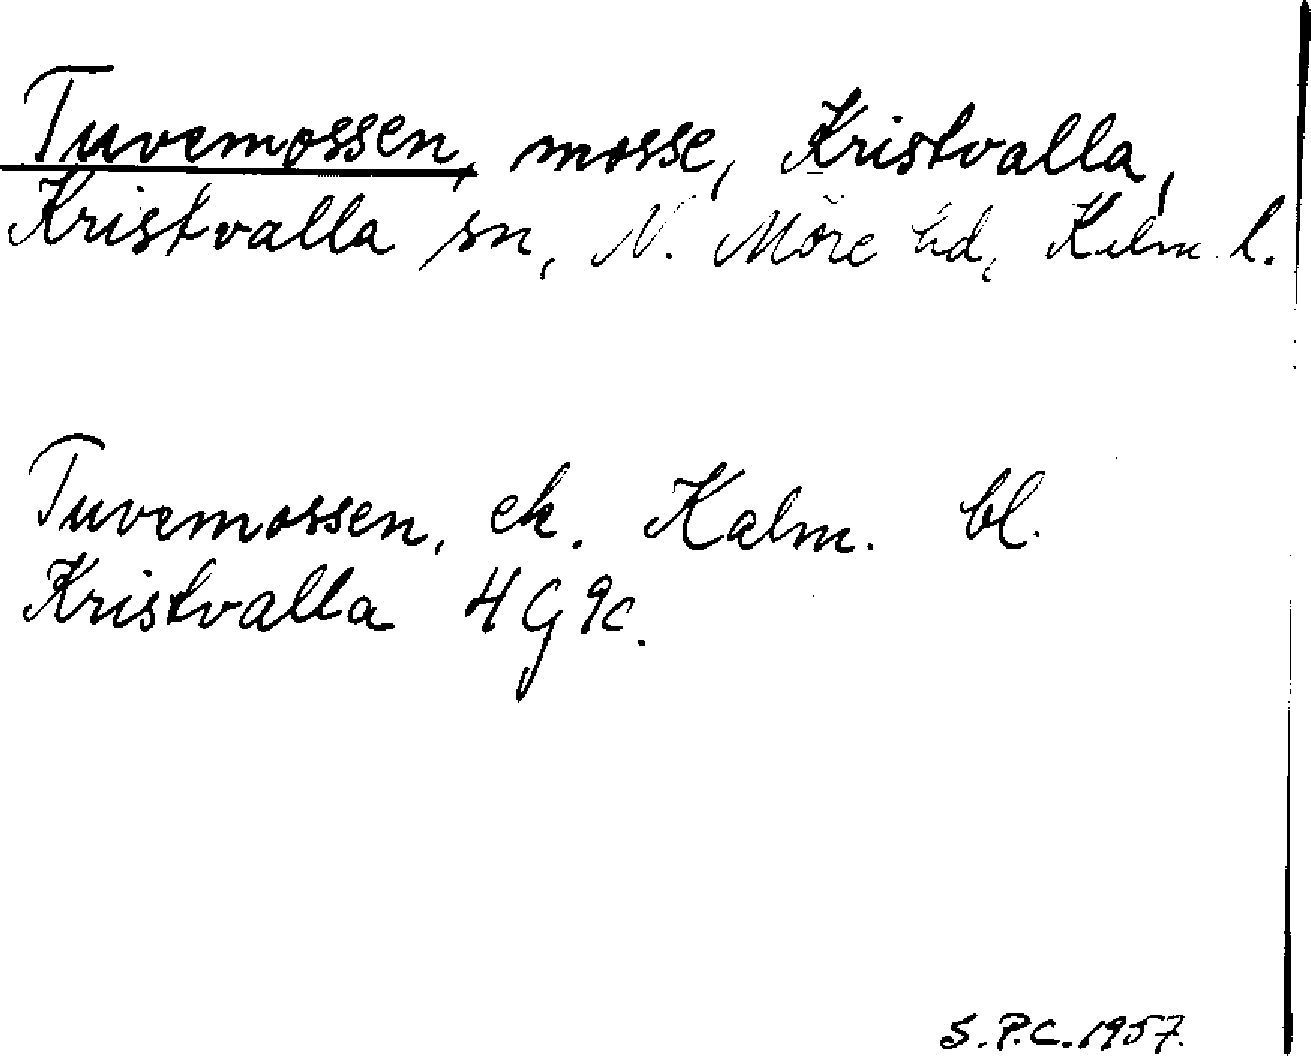 Tuvemossen, mosse, Kristvalla,
Kristvalla sn, N. Möre hd, Kalm. l.
Tuvemossen, ek. Kalm. bl.
Kristvalla 4G9c.
S.P.C. 1957.